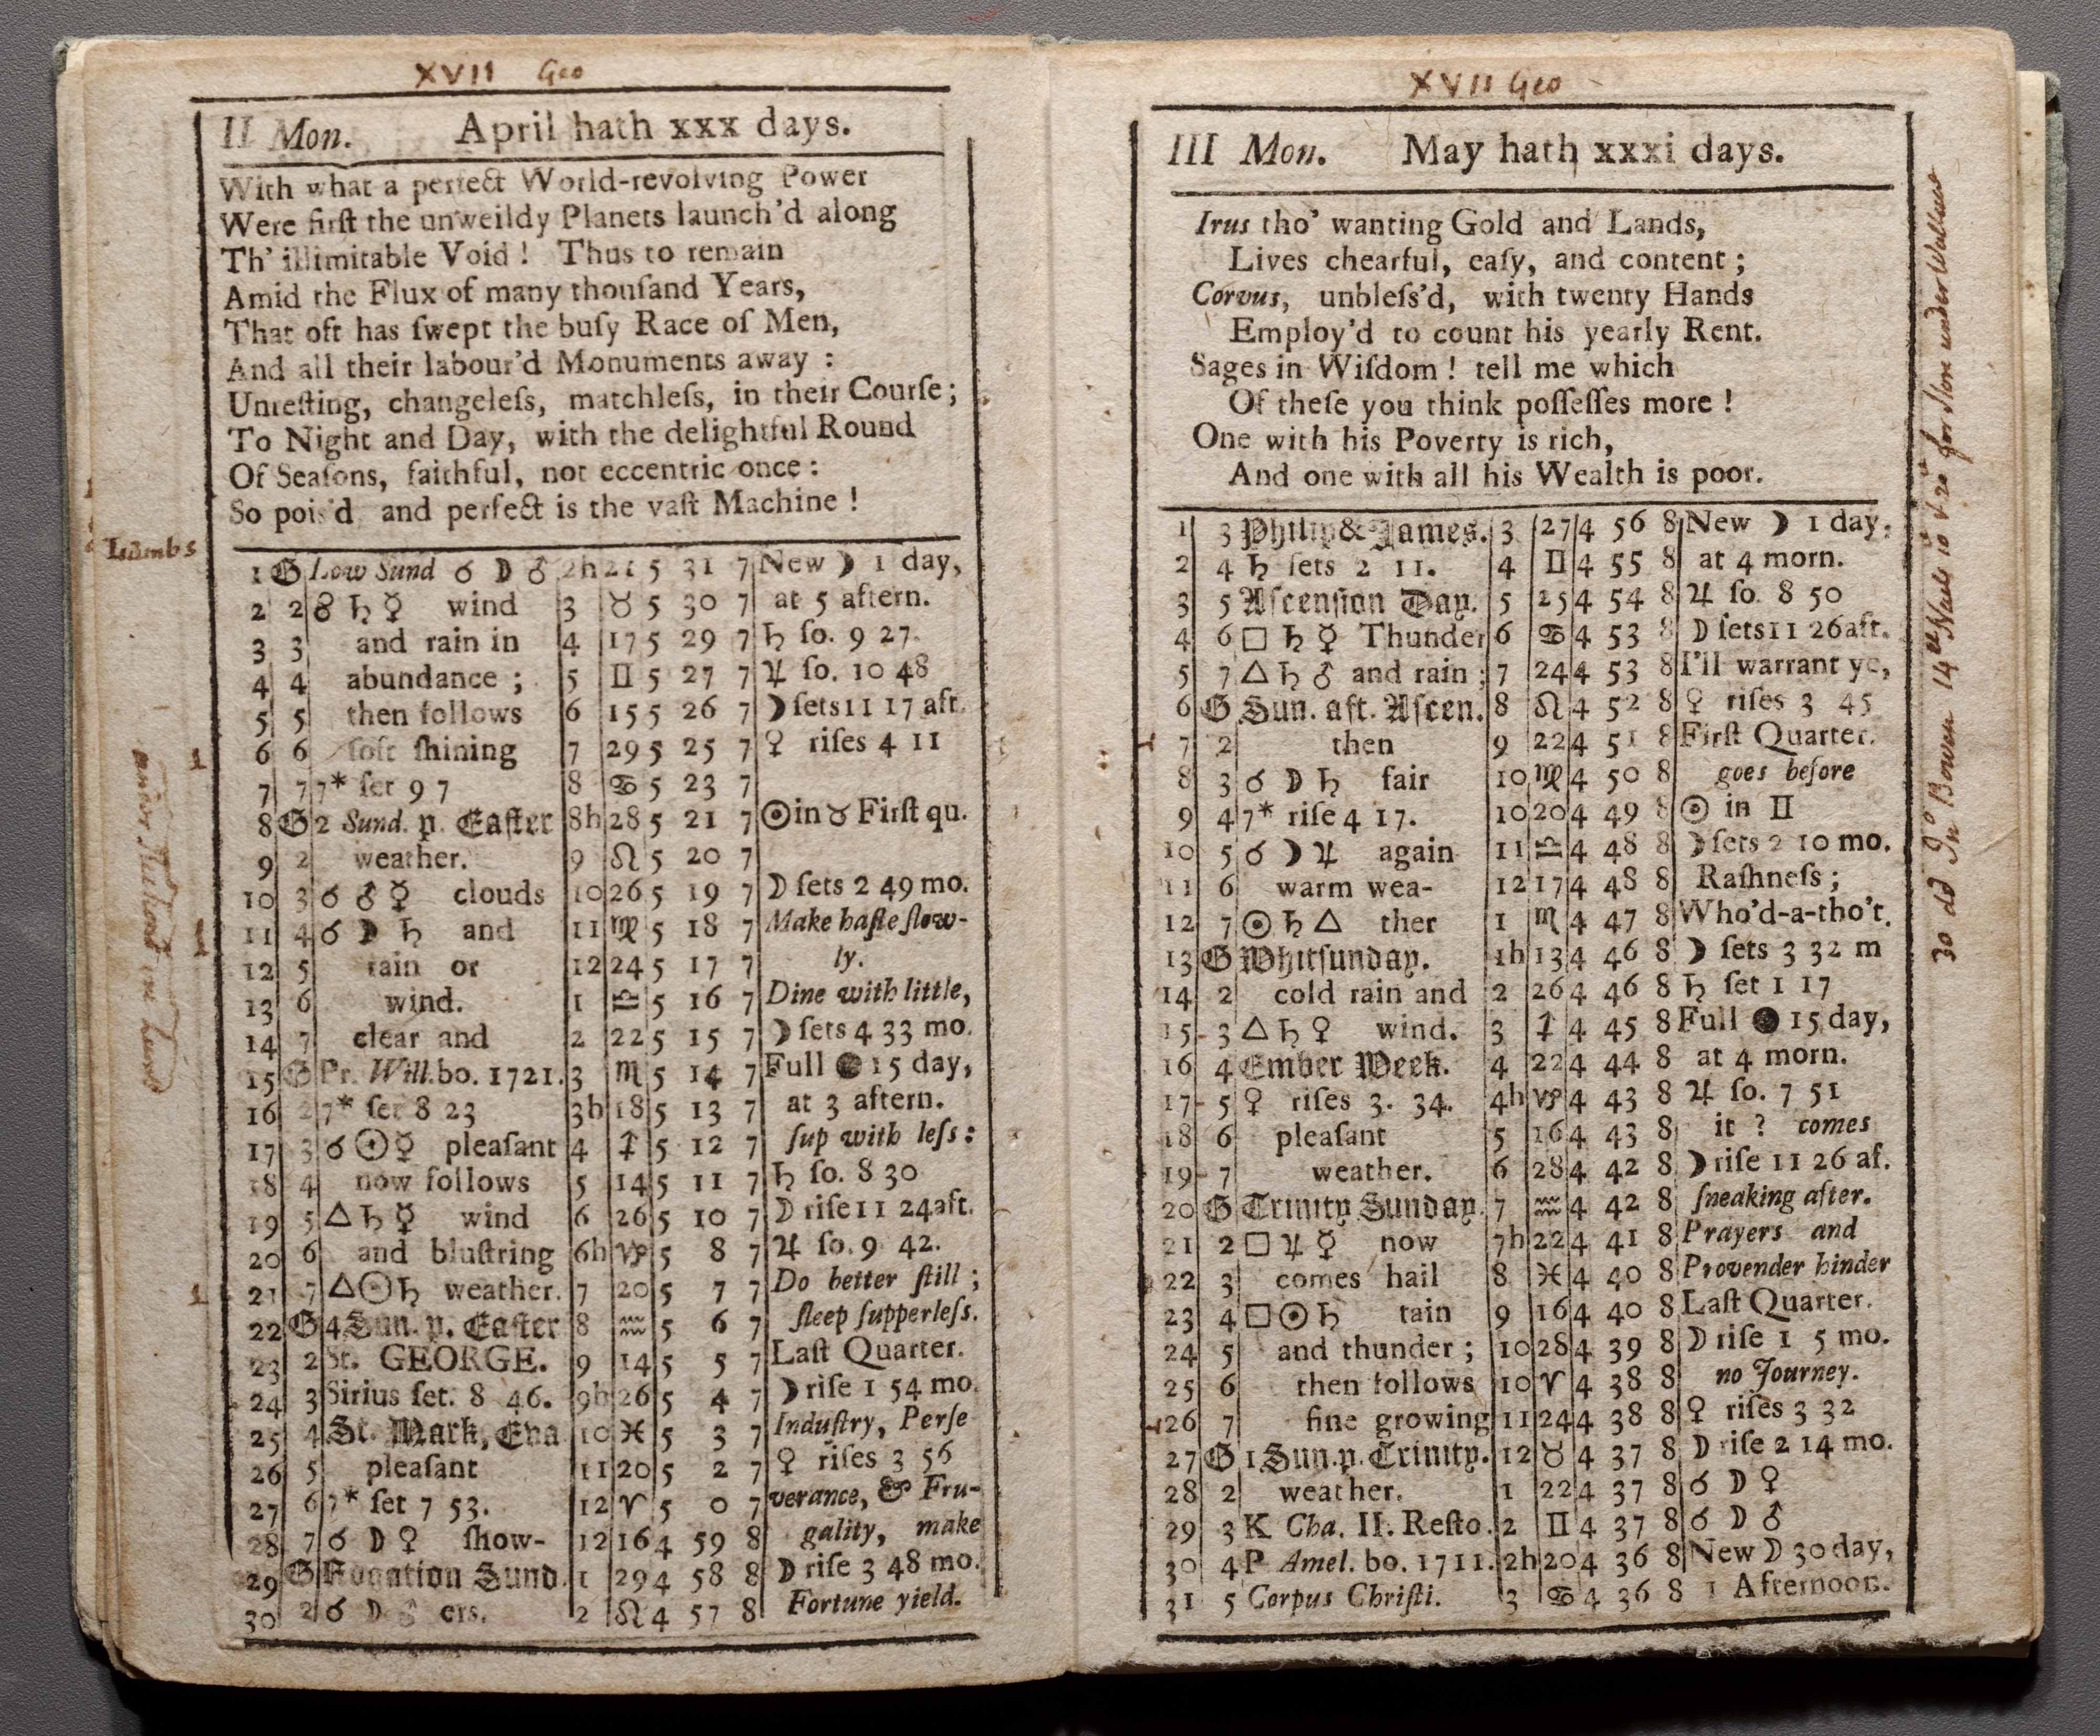 XVII Geo
II Mon. April hath xxx days.
With what a perfect World-revolving Power
Were firſt the unweildy Planets launch'd along
Th' illimitable Void ! Thus to remain
Amid the Flux of many thouſand Years,
That oft has ſwept the buſy Race of Men,
And all their labour'd Monuments away :
Unreſting, changeleſs, matchleſs, in their Courſe ;
To Night and Day, with the delightful Round
Of Seaſons, faithful, not eccentric once :
So pois'd and perfect is the vaſt Machine !
Lambs
1 G Low Sund ☌ ☽ ♂ 2h 21 5 31 7 New ☽ 1 day,
2 2 ☍ ♄ ☿ wind 3 ♉ 5 30 7 at 5 aftern.
3 3 and rain in 4 17 5 29 7 ♄ ſo. 9 27.
4 4 abundance ; 5 ♊ 5 27 7 ♃ ſo. 10 48
5 5 then follows 6 15 5 26 7 ☽ ſets 11 17 aft.
6 6 ſoft ſhining 7 29 5 25 7 ♀ riſes 4 11
7 7 7* ſet 9 7 8 ♋ 5 23 7
8 G 2 Sund. p. Eaſter 8h 28 5 21 7 ☉ in ♉ Firſt qu.
9 2 weather. 9 ♌ 5 20 7
10 3 ☌ ♂ ☿ clouds 10 26 5 19 7 ☽ ſets 2 49 mo.
11 4 ☌ ☽ ♄ and 11 ♍ 5 18 7 Make haſte ſlow-
12 5 rain or 12 24 5 17 7 ly.
13 6 wind. 1 ♎ 5 16 7 Dine with little,
14 7 clear and 2 22 5 15 7 ☽ ſets 4 33 mo.
15 G Pr. Will. bo. 1721. 3 ♏ 5 14 7 Full ● 15 day,
16 2 7* ſet 8 23 3h 18 5 13 7 at 3 aftern.
17 3 ☌ ☉ ☿ pleaſant 4 ♐ 5 12 7 ſup with leſs :
18 4 now follows 5 14 5 11 7 ♄ ſo. 8 30
19 5 △ ♄ ☿ wind 6 26 5 10 7 ☽ riſe 11 24 aft.
20 6 and bluſtring 6h ♑ 5 8 7 ♃ ſo. 9 42.
21 7 △ ☉ ♄ weather. 7 20 5 7 7 Do better ſtill ;
22 G 4 Sun. p. Eaſter 8 ♒ 5 6 7 ſleep ſupperleſs.
23 2 St. GEORGE. 9 14 5 5 7 Laſt Quarter.
24 3 Sirius ſet. 8 46. 9h 26 5 4 7 ☽ riſe 1 54 mo.
25 4 St. Mark, Eva 10 ♓ 5 3 7 Induſtry, Perſe
26 5 pleaſant 11 20 5 2 7 ♀ riſes 3 56
27 6 7* ſet 7 53. 12 ♈ 5 0 7 verance, & Fru-
28 7 ☌ ☽ ♀ ſhow- 12 16 4 59 8 gality, make
29 G Rogation Sund. 1 29 4 58 8 ☽ riſe 3 48 mo.
30 2 ☌ ☽ ♂ ers. 2 ♌ 4 57 8 Fortune yield.
XVII Geo
III Mon. May hath xxxi days.
Irus tho' wanting Gold and Lands,
Lives chearful, eaſy, and content ;
Corvus, unbleſs'd, with twenty Hands
Employ'd to count his yearly Rent.
Sages in Wiſdom ! tell me which
Of theſe you think poſſeſſes more !
One with his Poverty is rich,
And one with all his Wealth is poor.
1 3 Philip & James. 3 27 4 56 8 New ☽ 1 day,
2 4 ♄ ſets 2 11. 4 ♊ 4 55 8 at 4 morn.
3 5 Aſcenſion Day. 5 25 4 54 8 ♃ ſo. 8 50
4 6 □ ♄ ☿ Thunder 6 ♋ 4 53 8 ☽ ſets 11 26 aft.
5 7 △ ♄ ♂ and rain ; 7 24 4 53 8 I'll warrant ye,
6 G Sun. aft. Aſcen. 8 ♌ 4 52 8 ♀ riſes 3 45
7 2 then 9 22 4 51 8 Firſt Quarter.
8 3 ☌ ☽ ♄ fair 10 ♍ 4 50 8 goes before
9 4 7* riſe 4 17. 10 20 4 49 8 ☉ in ♊
10 5 ☌ ☽ ♃ again 11 ♎ 4 48 8 ☽ ſets 2 10 mo.
11 6 warm wea- 12 17 4 48 8 Raſhneſs ;
12 7 ☉ ♄ △ ther 1 ♏ 4 47 8 Who'd-a-tho't.
13 G Whitſunday. 1h 13 4 46 8 ☽ ſets 3 32 m
14 2 cold rain and 2 26 4 46 8 ♄ ſet 1 17
15 3 △ ♄ ♀ wind. 3 ♐ 4 45 8 Full ● 15 day,
16 4 Ember Week. 4 22 4 44 8 at 4 morn.
17 5 ♀ riſes 3. 34. 4h ♑ 4 43 8 ♃ ſo. 7 51
18 6 pleaſant 5 16 4 43 8 it ? comes
19 7 weather. 6 28 4 42 8 ☽ riſe 11 26 af.
20 G Trinity Sunday. 7 ♒ 4 42 8 ſneaking after.
21 2 □ ♃ ☿ now 7h 22 4 41 8 Prayers and
22 3 comes hail 8 ♓ 4 40 8 Provender hinder
23 4 □ ☉ ♄ rain 9 16 4 40 8 Laſt Quarter.
24 5 and thunder ; 10 28 4 39 8 ☽ riſe 1 5 mo.
25 6 then follows 10 ♈ 4 38 8 no Journey.
26 7 fine growing 11 24 4 38 8 ♀ riſes 3 32
27 G 1 Sun. p. Trinity. 12 ♉ 4 37 8 ☽ riſe 2 14 mo.
28 2 weather. 1 22 4 37 8 ☌ ☽ ♀
29 3 K Cha. II. Reſto. 2 ♊ 4 37 8 ☌ ☽ ♂
30 4 P Amel. bo. 1711. 2h 20 4 36 8 New ☽ 30 day,
31 5 Corpus Chriſti. 3 ♋ 4 36 8 1 Afternoon.
30 dd Jno Bowen 14 Nails 10 & 20 for Store under Wallace